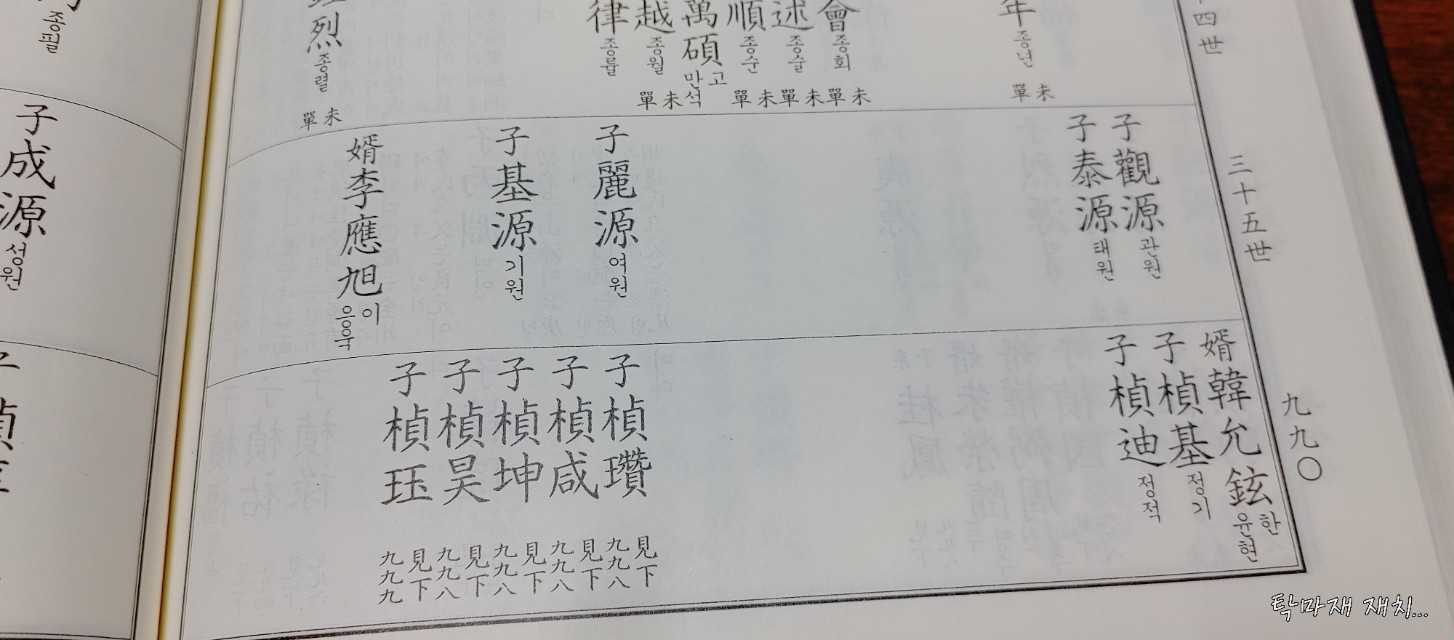 十四世
年 종년 未單
會 종회 未單
述 종술 未單
順 종순 未單
萬碩 고만석
越 종월 未單
律 종률
烈 종렬 未單
三十五世
子觀源 관원
子泰源 태원
子麗源 여원
子基源 기원
婿李應旭 이응욱
九九〇
婿韓允鉉 한윤현
子楨基 정기
子楨迪 정적
子楨瓚 見下九九八
子楨咸 見下九九八
子楨坤 見下九九八
子楨昊 見下九九八
子楨珏 見下九九九
종필
子成源 성원
子楨
탁마재 재치...